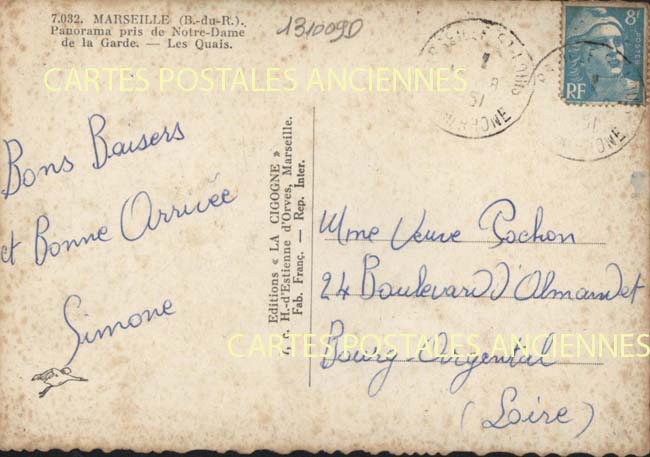 7.032. MARSEILLE (B.-du-R.).
Panorama pris de Notre-Dame
de la Garde. — Les Quais.
131009D
8F
POSTES
RF
CARTES POSTALES ANCIENNES
Bons Baisers
et Bonne Arrivée
Simone
Editions « LA CIGOGNE »
H.-d'Estienne d'Orves, Marseille.
Fab. Franç. — Rep. Inter.
Mme Veuve Pochon
24 Boulevard d'Almandet
Bourg-Argental
(Loire)
CARTES POSTALES ANCIENNES